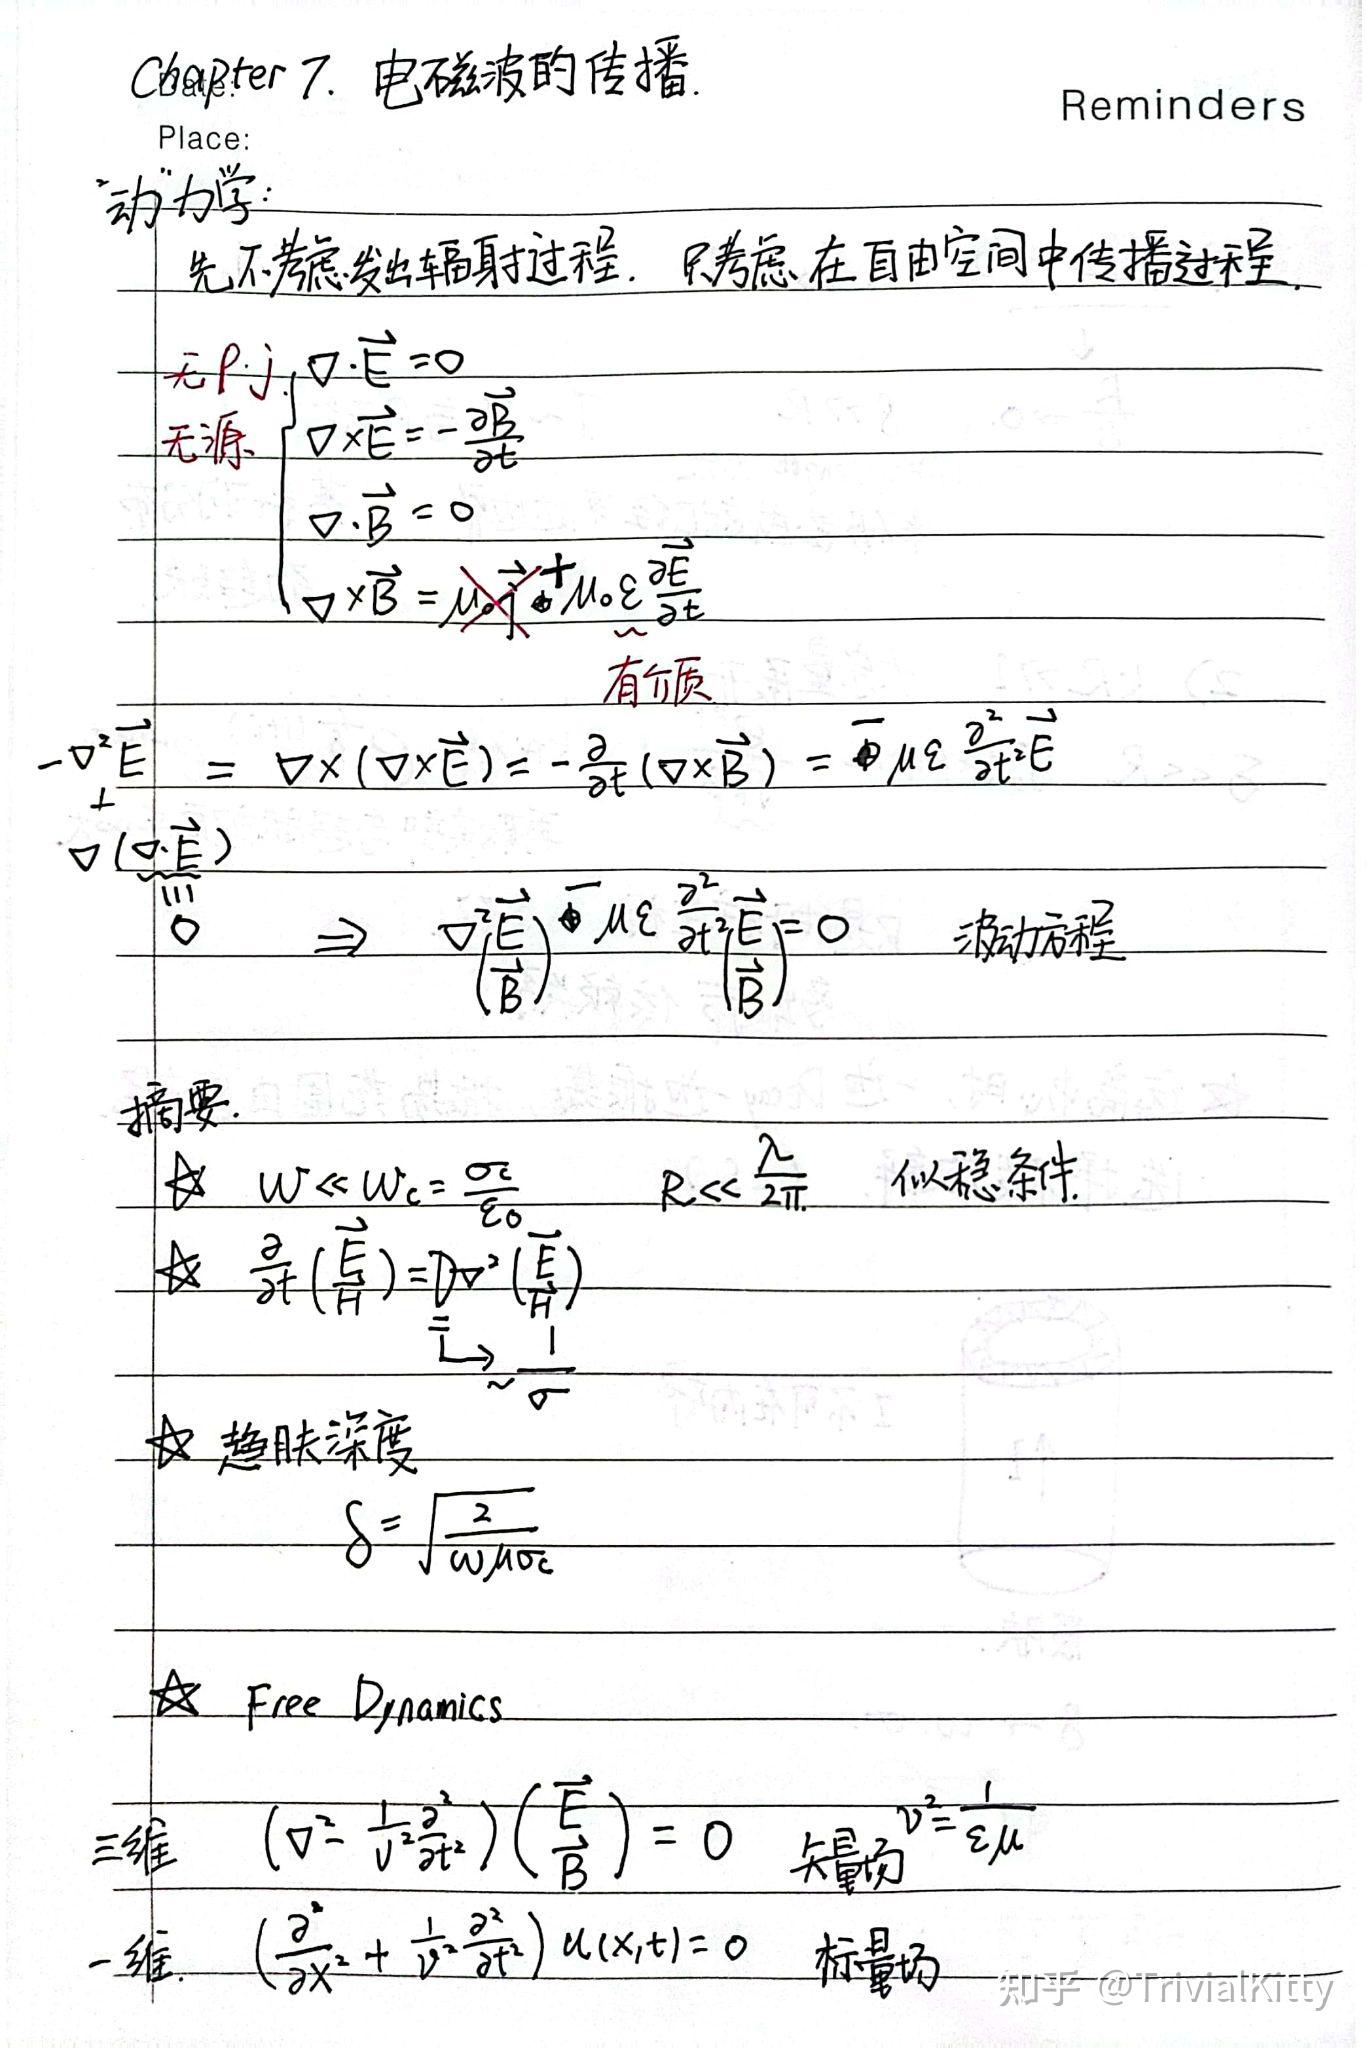 Chapter 7. 电磁波的传播.
Date:
Reminders
Place:
"动"力学:
先不考虑发出辐射过程. 只考虑在自由空间中传播过程.
无ρ.j. ∇·E⃗=0
无源. ∇×E⃗=-∂B⃗/∂t
∇·B⃗=0
∇×B⃗=μ₀j⃗+μ₀ε∂E⃗/∂t
有介质
-∇²E⃗ = ∇×(∇×E⃗)=-∂/∂t(∇×B⃗)=-με ∂²/∂t² E⃗
+
∇(∇·E⃗)
≡
0 ⇒ ∇²(E⃗ B⃗) - με ∂²/∂t²(E⃗ B⃗)=0 波动方程
摘要.
☆ w≪w_c=σc/ε0 R≪λ/2π 似稳条件.
☆ ∂/∂t(E⃗ H⃗)=D∇²(E⃗ H⃗)
↳ ~ 1/σ
☆ 趋肤深度
δ=√(2/ωμσc)
☆ Free Dynamics
三维 (∇²-1/v² ∂²/∂t²)(E⃗ B⃗)=0 矢量场 v²=1/εμ
一维. (∂²/∂x²+1/v² ∂²/∂t²)u(x,t)=0 标量场
知乎 @TrivialKitty